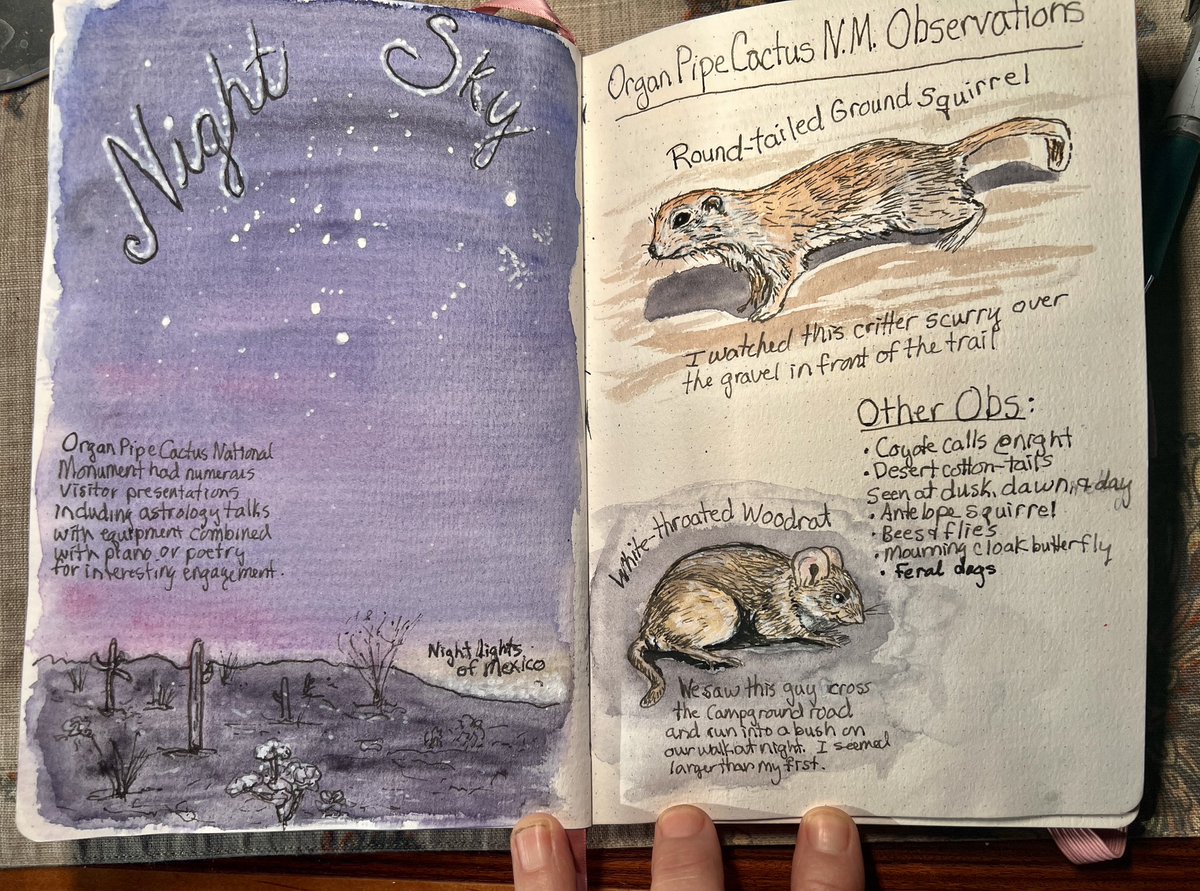 Night Sky
Organ Pipe Cactus National
Monument had numerous
Visitor presentations
including astrology talks
with equipment combined
with piano or poetry
for interesting engagement.
Night Lights
of Mexico
Organ Pipe Cactus N.M. Observations
Round-tailed Ground Squirrel
I watched this critter scurry over
the gravel in front of the trail
Other Obs:
• Coyote calls @night
• Desert cotton-tails
Seen at dusk, dawn, & day
• Antelope squirrel
• Bees & flies
• Mourning cloak butterfly
• Feral dogs
White-throated Woodrat
We saw this guy cross
the Campground road
and run into a bush on
our walk at night. I seemed
larger than my fist.